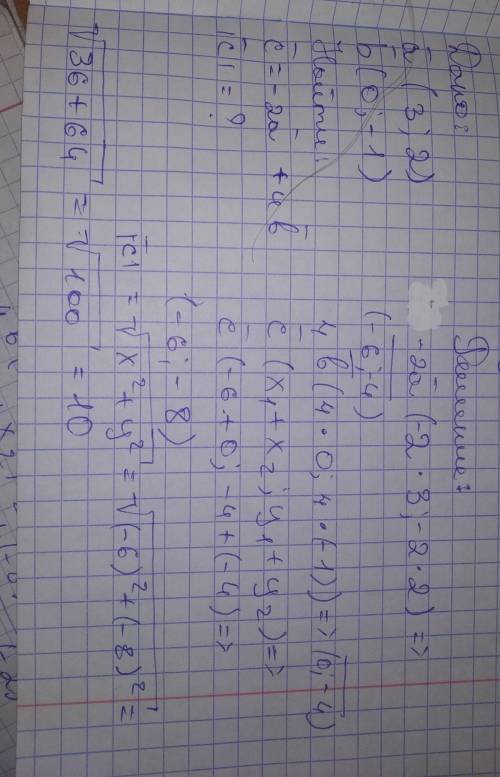 Дано:
ā (3; 2)
b̄ (0; -1)
Найти:
c̄ = -2ā + 4b̄
|c̄| = ?
Решение:
-2ā (-2·3; -2·2) =>
(-6; -4)
4b̄ (4·0; 4·(-1)) => (0; -4)
c̄ (x₁ + x₂; y₁ + y₂) =>
c̄ (-6 + 0; -4 + (-4) =>
(-6; -8)
|c̄| = √x² + y² = √(-6)² + (-8)² =
√36 + 64 = √100 = 10